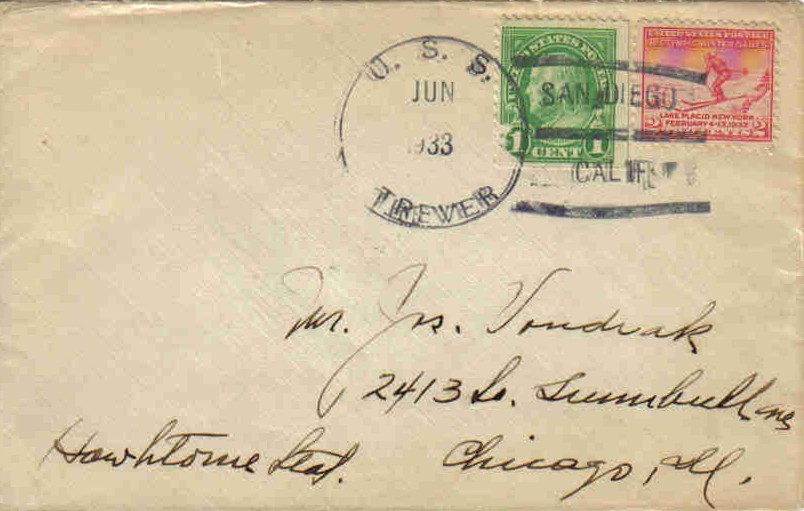 U. S. S.
JUN
1933
TREVER
SAN DIEGO
CALIF
UNITED STATES POSTAGE
1 CENT 1
UNITED STATES POSTAGE
III OLYMPIC WINTER GAMES
LAKE PLACID NEW YORK
FEBRUARY 4-13, 1932
2 CENTS 2
Mr. Jos. Vondrak
2413 So. Trumbull Ave
Hawhtorne Sta. Chicago, Ill.